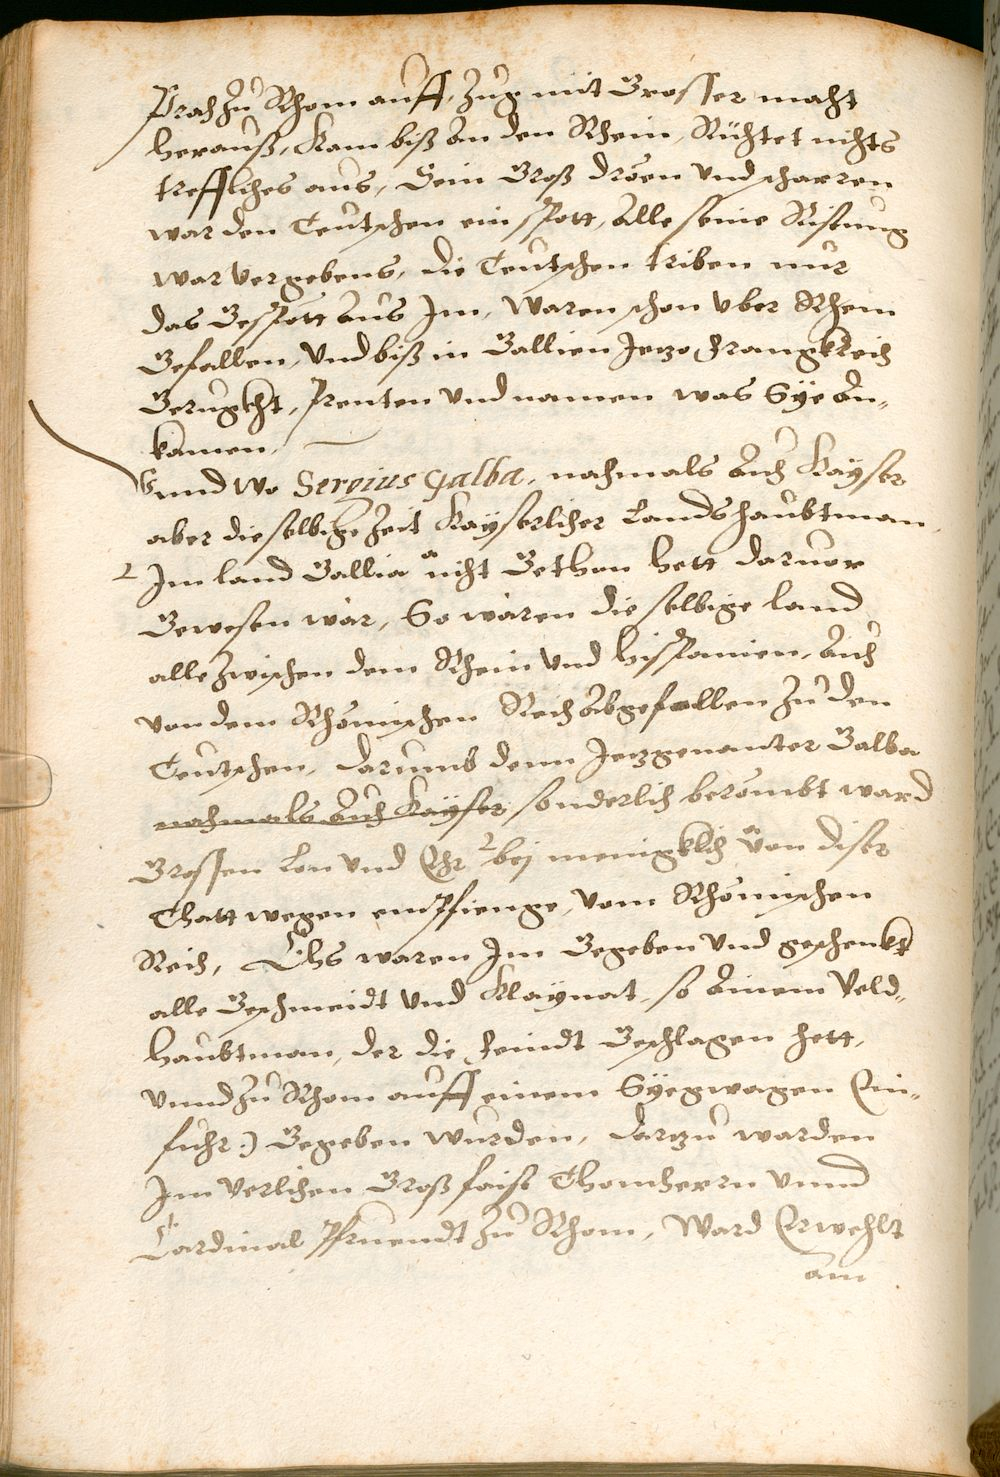 Prach zu Rhom auff, zug mit Grosser macht
herauß, Kam biß an den Rhein, Richtet nichts
treffliches aus, Sein Groß dröen vnd scharren
war den Teutschen ein spott, alle seine Ristung
war vergebens, die Teutschen triben nur
das Gespött aus Im, Waren schon vber Rhein
Gefallen, Vnd biß in Gallien Jezo Frangkreich
Gerugkht, Prenten vnd namen was Sÿe an-
kamen,
Vnnd wo Sergius Galba, nachmals auch Kayser
aber dieselbige Zeit Kayserlicher Landshaubtman
2 Im land Gallia a nicht Gethan hett daruor
Gewesen war, So wären die selbige land
alle zwischen dem Rhein vnd hispanien, auch
von dem Rhömischen Reich abgefallen zu den
Teutschen, Darumb denn Jezgenanter Galba
nachmals auch Kayser sonderlich berömbt ward
Grossen Lon vnd Ehr 2 bej menigklich a von diser
Thatt wegen empfienge, vom Rhömischen
Reich, Ehs waren Im Gegeben vnd geschenkt
alle Geschmeidt vnd Klaynat, so ainem Veld-
haubtman, der die Feindt Geschlagen hett,
vnnd zu Rhom auff einem Sÿegwagen Ein-
fuhr.) Gegeben wurden, Darzu warden
Im verlichen Groß faist Thomherrn vnnd
Cardinal Pfruendt zu Rhom, Ward Erwehlt
am